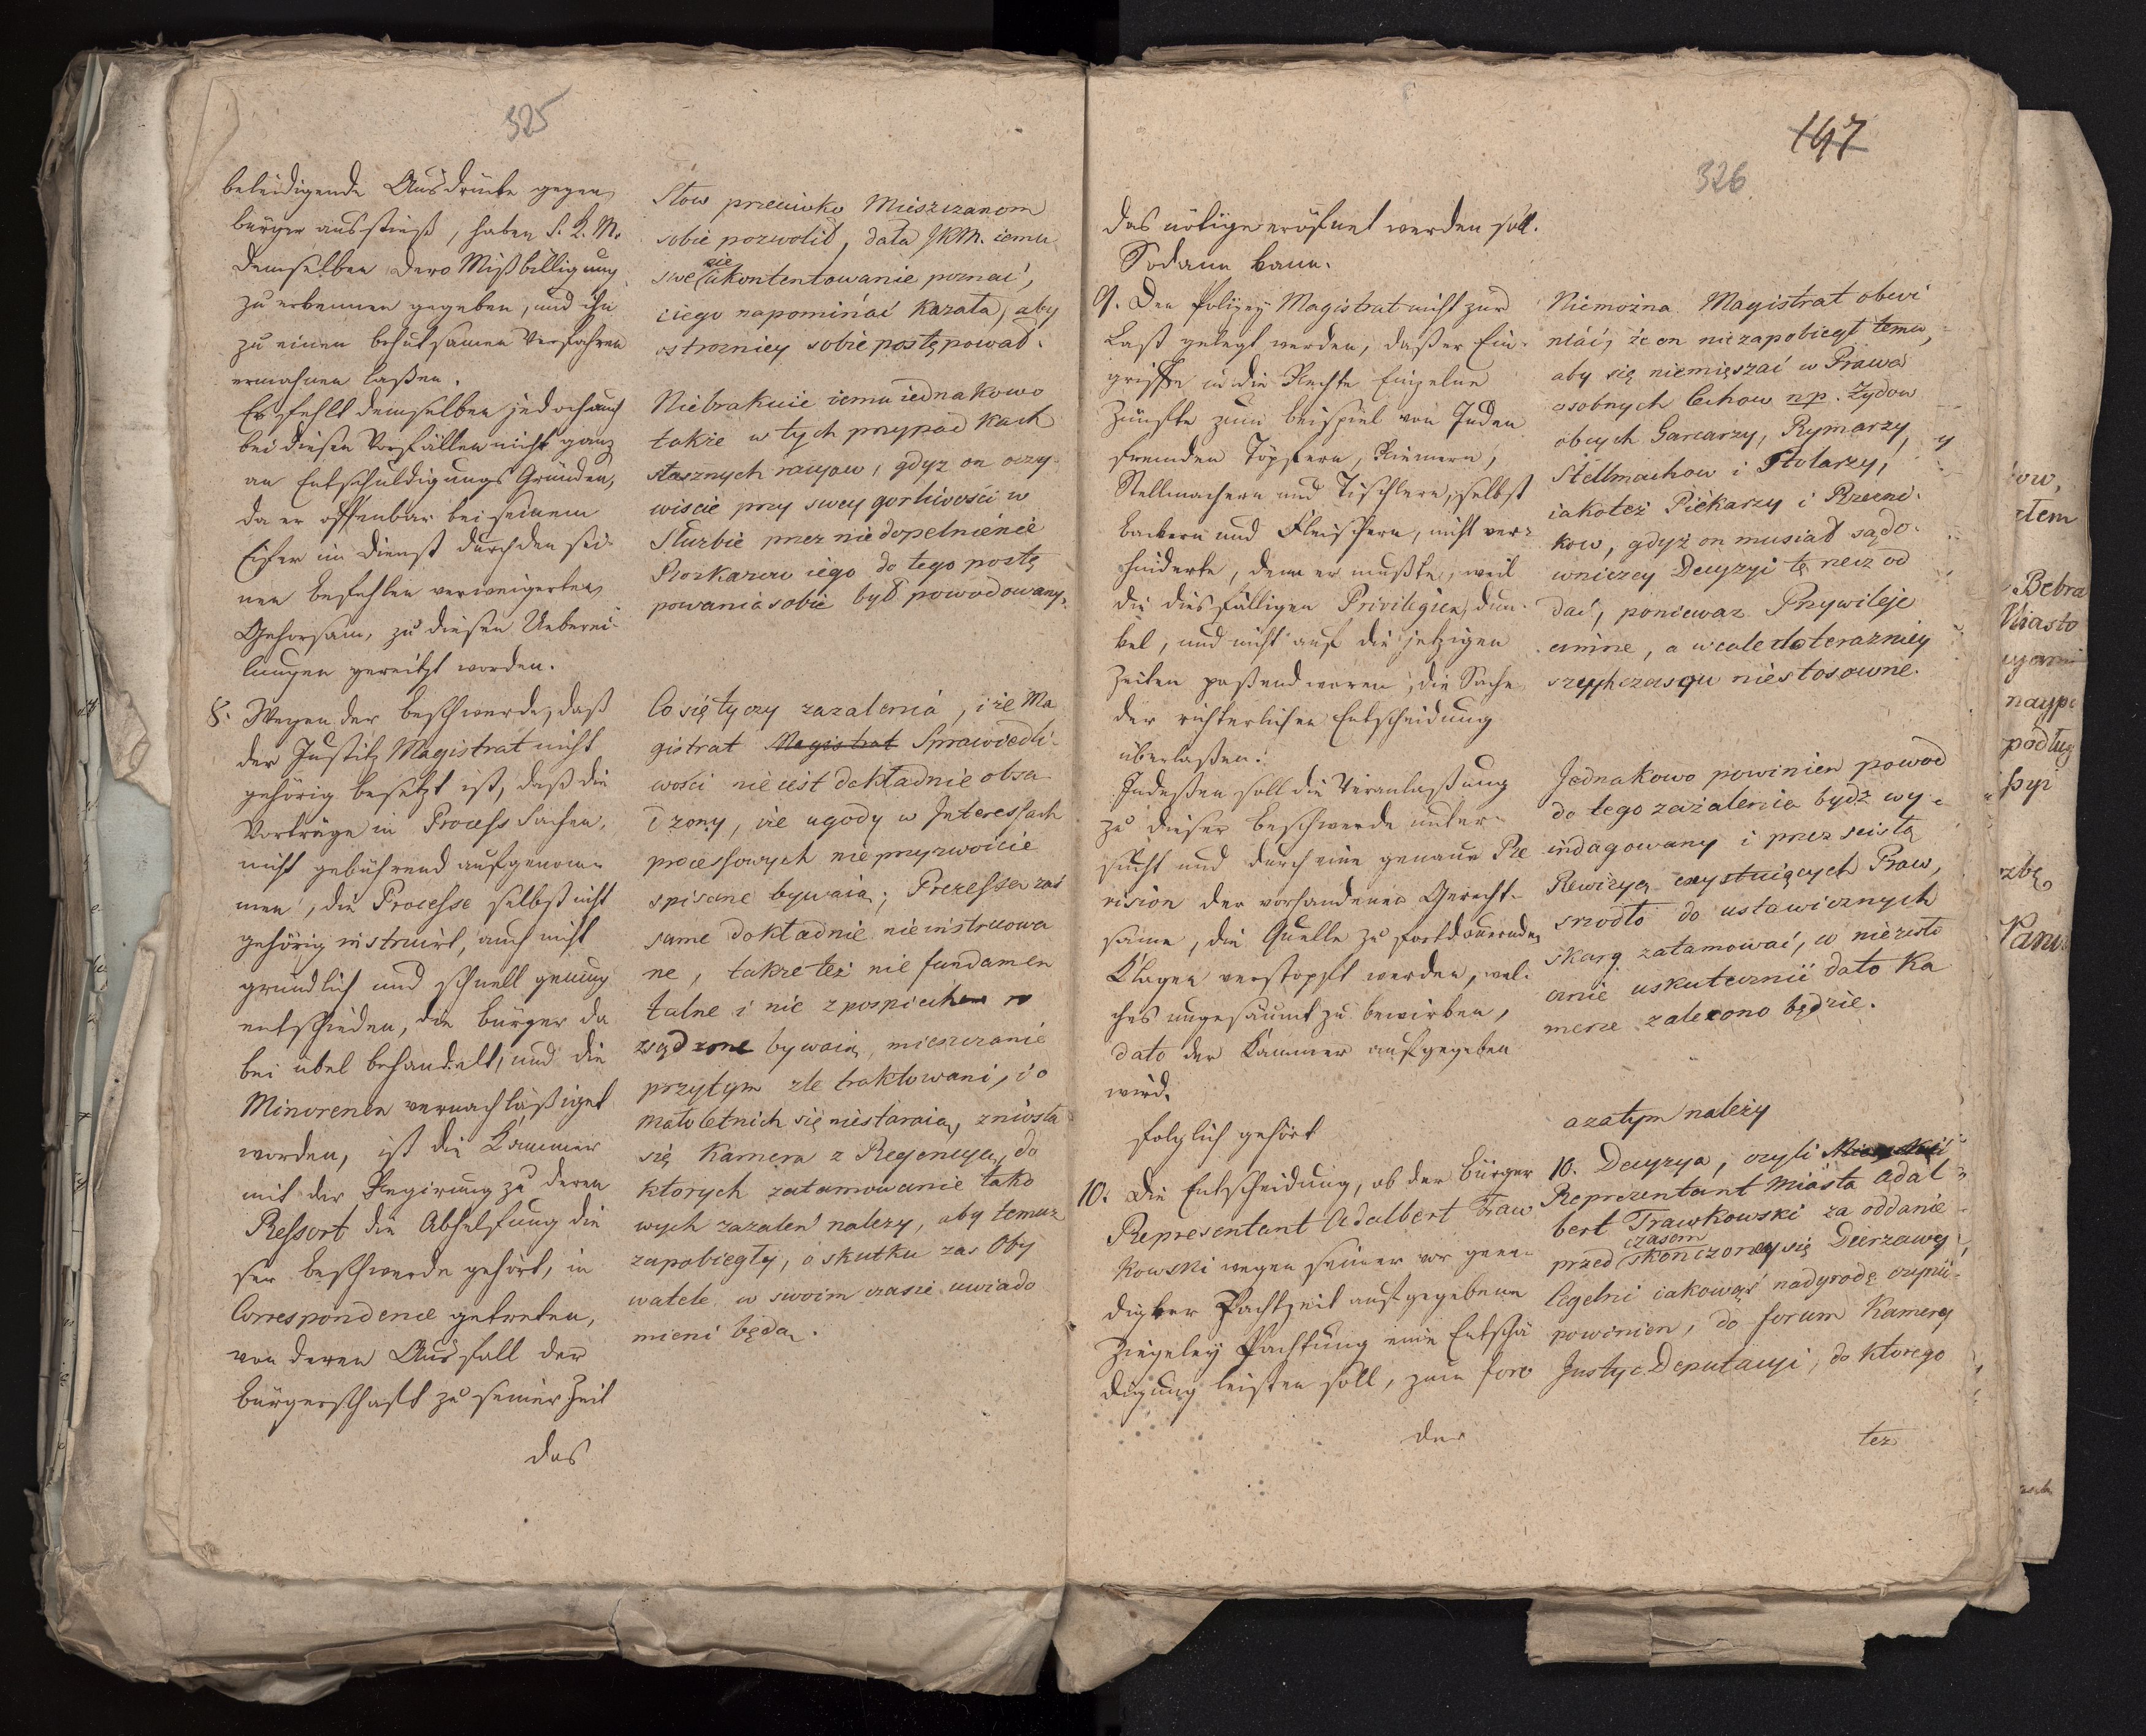 325
beleidigende Ausdrücke gegen
bürger ausstieß, haben S. K. M.
demselben dero Mißbilligung
zu erkennen gegeben, und ihn
zu einem behutsamen Verfahren
ermahnen laßen.
Es fehlt demselben jedoch auch
bei diesen Vorfällen nicht ganz
an Entschuldigungs Gründen,
da er offenbar bei seinem
Eifer im Dienst durch den sei-
nen befehlen verweigerten
Gehorsam, zu diesen Uebereі-
lungen gereitzt worden.
8. Wegen der beschwerde, daß
der Justitz Magistrat nicht
gehörig besetzt ist, daß die
Vorträge in Process Sachen,
nicht gebührend aufgenom-
men, die Processe selbst nicht
gehörig instruirt, auch nicht
gründlich und schnell genung
entschieden, die bürger da
bei übel behandelt, und die
Minorenen vernachläßiget
worden, ist die Kammer
mit der Regirung zu deren
Ressort die Abhelfung die
ser beschwerde gehört, in
Correspondence getreten,
von deren Ausfall der
bürgerschaft zu seiner Zeit
das
Słow przeciwko Mieszczanom
sobie pozwolił, dała JKM. iemu
swe nie
ukontentowanie poznać,
i iego napominać kazała, aby
ostrozniey sobie postępował.
Niebrakuie iemu iednakowo
takze w tych przypad kach
słusznych racyow, gdyz on oczy
wiscie przy swey gorliwości w
Sluzbie przez niedopełnienie
Rozkazow iego do tego postę
powania sobie był powodowany.
Co się tyczy zazalenia, i ze Ma
gistrat Magistrat Sprawiedli-
wości nie iest dokładnie obsa
dzony, ize ugody w Interessach
processowych nie przyzwoicie
spisane bywaią; Processa zaś
same dokładnie nie instruowa
ne, takze też nie fundamen
talne i nie z pospiechem ro
zsądzone bywaią, mieszczanie
przytym zle traktowani, i o
małoletnich się niestaraią, zniosła
się Kamera z Regencyą, do
ktorych zatamowanie tako
wych zazaleń nalezy, aby temuz
zapobiegły, o skutku zas Oby
watele w swoim czasie uwiado
mieni będą.
147
326
das nötige eröfnet werden soll.
Sodann kann.
9. Den Polizey Magistrat nicht zur
Last gelegt werden, daß er Ein-
griffe in die Rechte Einzelne
Zünfte zum beispiel von Juden
fremden Töpfern, Riemern,
Stellmachern und Tischlern, selbst
backern und Fleischern, nicht ver-
hinderte, denn er mußte, weil
die diesfälligen Privilegien dun-
kel, und nicht auf die jetzigen
Zeiten paßend waren, die Sache
der richterlichen Entscheidung
überlaßen.
Indeßen soll die Veranlaßung
zu dieser beschwerde unter-
sucht und durch eine genaue Re
vision der vorhandenen Gerecht-
same, die Quelle zu fortdauernden
Klagen verstopft werden, wel-
ches ungesäumt zu bewirken,
dato der Kammer aufgegeben
wird.
folglich gehört
10. Die Entscheidung, ob der bürger
Representant Adalbert Traw
kowski wegen seiner vor geen-
digter Pachtzeit aufgegebene
Ziegeley Pachtung eine Entschä
digung leisten soll, zum foro
der
Niemożna Magistrat obwi
niáć, że on niezapobiegł temu,
aby się niemięszać w Prawa
osobnych Cechow np. Zydow
obcych Garcarzy, Rymarzy,
Stellmachow i Stolarzy,
iakoteż Piekarzy i Rzezni-
kow, gdyż on musiał sądo-
wniczey Decyzyi tę rzecz od
dać, poniewaz Przywileje
ciemne, a wcale do terazniey
szych czasow niestosowne.
Jednakowo powinien powod
do tego zażalenia bydź wy-
indagowany i przez scisłą
Rewizyą exystuiących Praw,
srzodło do ustawicznych
skarg zatamować, co niezwło
cznie uskutecznić dato Ka
merze zalecono będzie.
azatym należy
10. Decyzya, czyli
Reprezentant Miasta Adal
bert Trawkowski za oddanie
przed czasem
skonczoney się Dzierzawy
Cegelni iakowąś nadgrodę czynić
powinien, do forum Kamery
Justyc. Deputacyi, do ktorego
tez